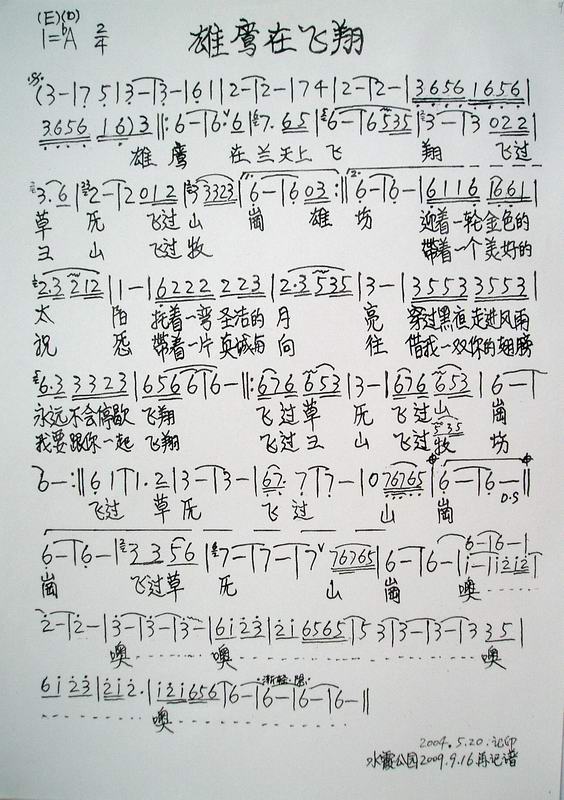 (E)(D)
1=♭A 2/4 雄鸾在飞翔
(3-|7 5|3-|3-|6 1||2-|2-|7 4|2-|2-|3656 1656|
3656 16)3||:6-|6·6|7. 65|6-|6535|3-|3 022|
雄 鸾 在 兰天上 飞 翔 飞过
3.6|2-|2012|3 3323|6-|6 03:||6-|6-|6116 1661|
草 原 飞过 山 崗 雄 坊 迎着一轮金色的
玉 山 飞过 牧 带着一个美好的
2.3 212|1-|6222 223|2·3 535|3-|3553 3553|
太 阳 托着一弯圣洁的 月 亮 穿过黑夜走进风雨
祝 愿 带着一片真诚与 向 往 借我一双你的翅膀
6.3 3323|656 6|6-:||:676 653|3-|676 653|6-|
永远不会停歇 飞翔 飞过草 原 飞过山 崗
我要跟你一起 飞翔 飞过玉 山 飞过牧 坊
6-:||6 1|1.2|3-|3-|67. 7|7-|0 76765|6-|6-||
飞过 草原 飞 过 山 崗 D.S
6-|6-|3 3 56|7-|7-|7 76765|6-|6-
崗 飞过草 原 山 崗 噢
2-|2-|3-|3-|3-|61 23|21 6565|5 3|3-|3-|3 35|
噢 噢 噢
61 23|212.|121656|6-|6-|6-|6-||
渐轻·慢
噢
2004.5.20.记印
水霞公园2009.9.16再记谱